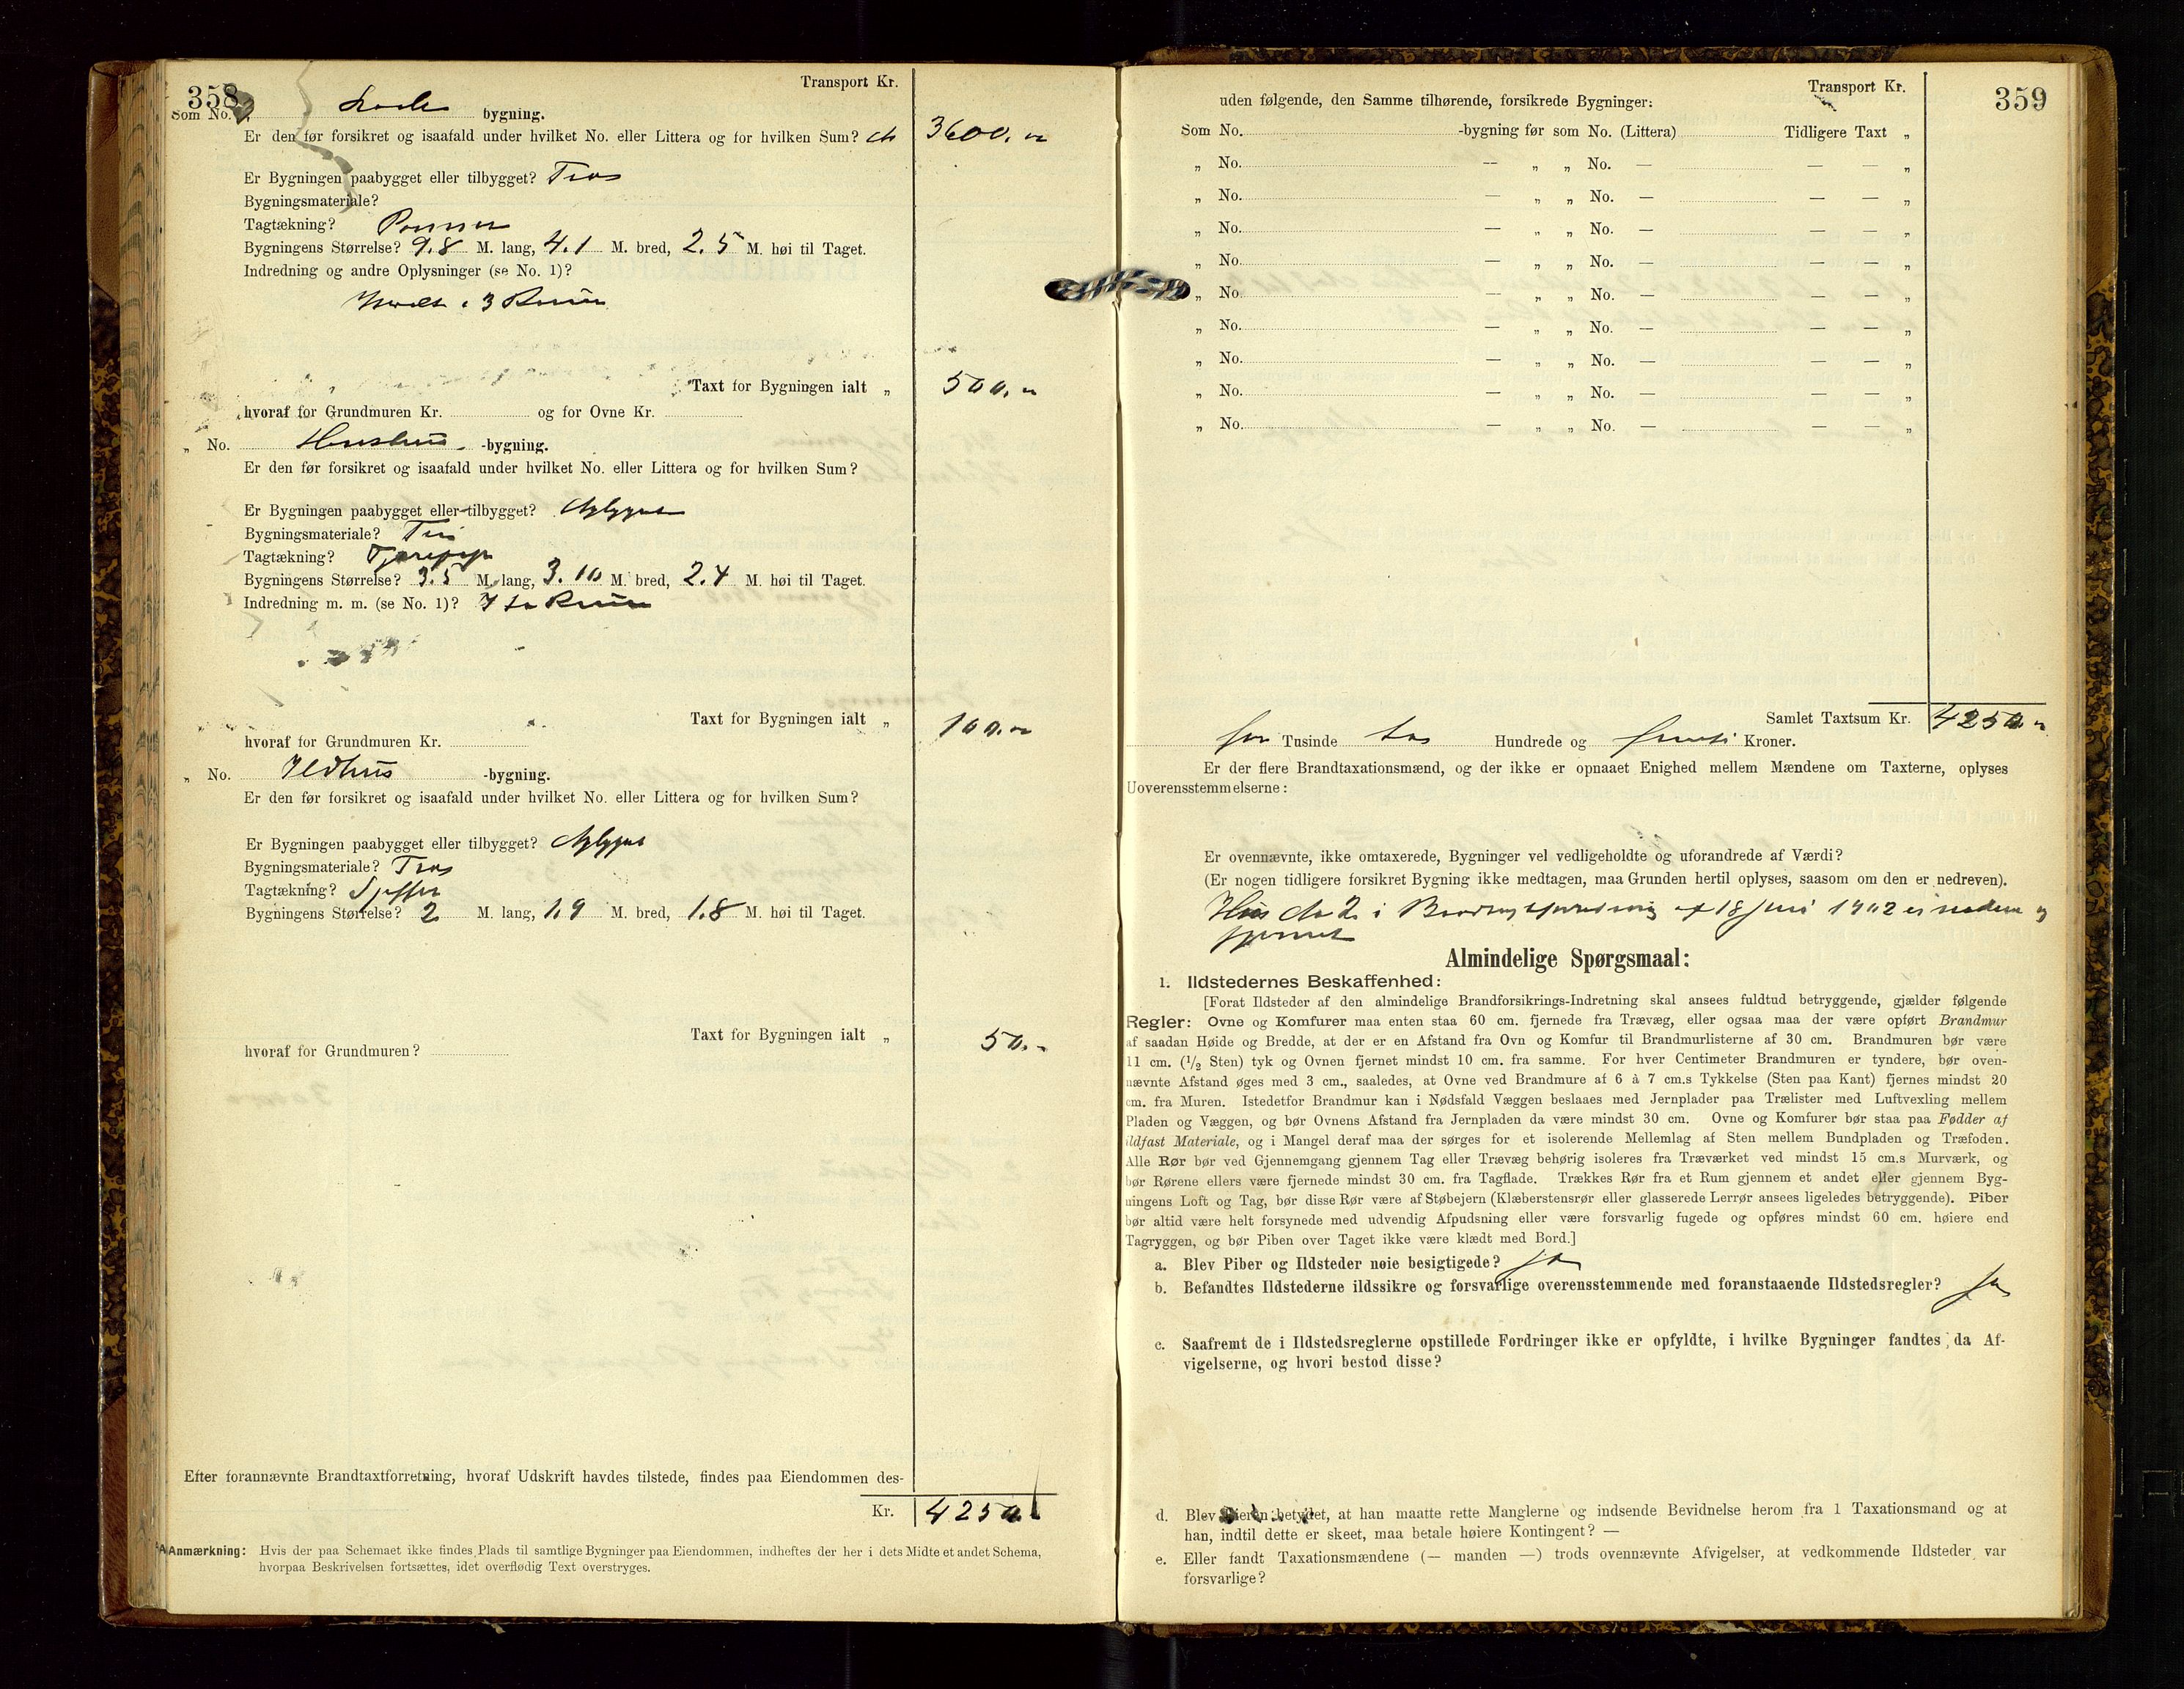 358
Transport Kr.
Som No. bygning.
Er den før forsikret og isaafald under hvilket No. eller Littera og for hvilken Sum?
3600.
Er Bygningen paabygget eller tilbygget?
Bygningsmateriale?
Tagtækning?
Bygningens Størrelse? 9.8 M. lang, 4.1 M. bred, 2.5 M. høi til Taget.
Indredning og andre Oplysninger (se No. 1)?
3
Taxt for Bygningen ialt „ 500.
hvoraf for Grundmuren Kr. og for Ovne Kr.
„ No. -bygning.
Er den før forsikret og isaafald under hvilket No. eller Littera og for hvilken Sum?
Er Bygningen paabygget eller tilbygget?
Bygningsmateriale?
Tagtækning?
Bygningens Størrelse? 3.5 M. lang, 3.10 M. bred, 2.4 M. høi til Taget.
Indredning m. m. (se No. 1)?
Taxt for Bygningen ialt „ 100.
hvoraf for Grundmuren Kr.
„ No. Ildhus -bygning.
Er den før forsikret og isaafald under hvilket No. eller Littera og for hvilken Sum?
Er Bygningen paabygget eller tilbygget?
Bygningsmateriale?
Tagtækning?
Bygningens Størrelse? 2 M. lang, 1.9 M. bred, 1.8 M. høi til Taget.
Taxt for Bygningen ialt „ 50.-
hvoraf for Grundmuren?
Efter forannævnte Brandtaxtforretning, hvoraf Udskrift havdes tilstede, findes paa Eiendommen des-
Kr. 4250
Anmærkning: Hvis der paa Schemaet ikke findes Plads til samtlige Bygninger paa Eiendommen, indheftes der her i dets Midte et andet Schema,
hvorpaa Beskrivelsen fortsættes, idet overflødig Text overstryges.
359
Transport Kr.
uden følgende, den Samme tilhørende, forsikrede Bygninger:
Som No. -bygning før som No. (Littera) Tidligere Taxt „
„ No. — „ „ No. — — — „
„ No. — „ „ No. — — — „
„ No. — „ „ No. — — — „
„ No. — „ „ No. — — — „
„ No. — „ „ No. — — — „
„ No. — „ „ No. — — — „
„ No. — „ „ No. — — — „
„ No. — „ „ No. — — — „
„ No. — „ „ No. — — — „
Samlet Taxtsum Kr. 4250
Tusinde to Hundrede og Kroner.
Er der flere Brandtaxationsmænd, og der ikke er opnaaet Enighed mellem Mændene om Taxterne, oplyses
Uoverensstemmelserne:
Er ovennævnte, ikke omtaxerede, Bygninger vel vedligeholdte og uforandrede af Værdi?
(Er nogen tidligere forsikret Bygning ikke medtagen, maa Grunden hertil oplyses, saasom om den er nedreven).
Hus No 2 i af 18 Juni 1902 er
Almindelige Spørgsmaal:
1. Ildstedernes Beskaffenhed:
[Forat Ildsteder af den almindelige Brandforsikrings-Indretning skal ansees fuldtud betryggende, gjælder følgende
Regler: Ovne og Komfurer maa enten staa 60 cm. fjernede fra Trævæg, eller ogsaa maa der være opført Brandmur
af saadan Høide og Bredde, at der er en Afstand fra Ovn og Komfur til Brandmurlisterne af 30 cm. Brandmuren bør være
11 cm. (1/2 Sten) tyk og Ovnen fjernet mindst 10 cm. fra samme. For hver Centimeter Brandmuren er tyndere, bør oven-
nævnte Afstand øges med 3 cm., saaledes, at Ovne ved Brandmure af 6 à 7 cm.s Tykkelse (Sten paa Kant) fjernes mindst 20
cm. fra Muren. Istedetfor Brandmur kan i Nødsfald Væggen beslaaes med Jernplader paa Trælister med Luftvexling mellem
Pladen og Væggen, og bør Ovnens Afstand fra Jernpladen da være mindst 30 cm. Ovne og Komfurer bør staa paa Fødder af
ildfast Materiale, og i Mangel deraf maa der sørges for et isolerende Mellemlag af Sten mellem Bundpladen og Træfoden.
Alle Rør bør ved Gjennemgang gjennem Tag eller Trævæg behørig isoleres fra Træværket ved mindst 15 cm.s Murværk, og
bør Rørene ellers være fjernede mindst 30 cm. fra Tagflade. Trækkes Rør fra et Rum gjennem et andet eller gjennem Byg-
ningens Loft og Tag, bør disse Rør være af Støbejern (Klæberstensrør eller glasserede Lerrør ansees ligeledes betryggende). Piber
bør altid være helt forsynede med udvendig Afpudsning eller være forsvarlig fugede og opføres mindst 60 cm. høiere end
Tagryggen, og bør Piben over Taget ikke være klædt med Bord.]
a. Blev Piber og Ildsteder nøie besigtigede? Ja
b. Befandtes Ildstederne ildssikre og forsvarlige overensstemmende med foranstaaende Ildstedsregler? Ja
c. Saafremt de i Ildstedsreglerne opstillede Fordringer ikke er opfyldte, i hvilke Bygninger fandtes da Af-
vigelserne, og hvori bestod disse?
d. Blev Eieren betydet, at han maatte rette Manglerne og indsende Bevidnelse herom fra 1 Taxationsmand og at
han, indtil dette er skeet, maa betale høiere Kontingent? —
e. Eller fandt Taxationsmændene (— manden —) trods ovennævnte Afvigelser, at vedkommende Ildsteder var
forsvarlige?